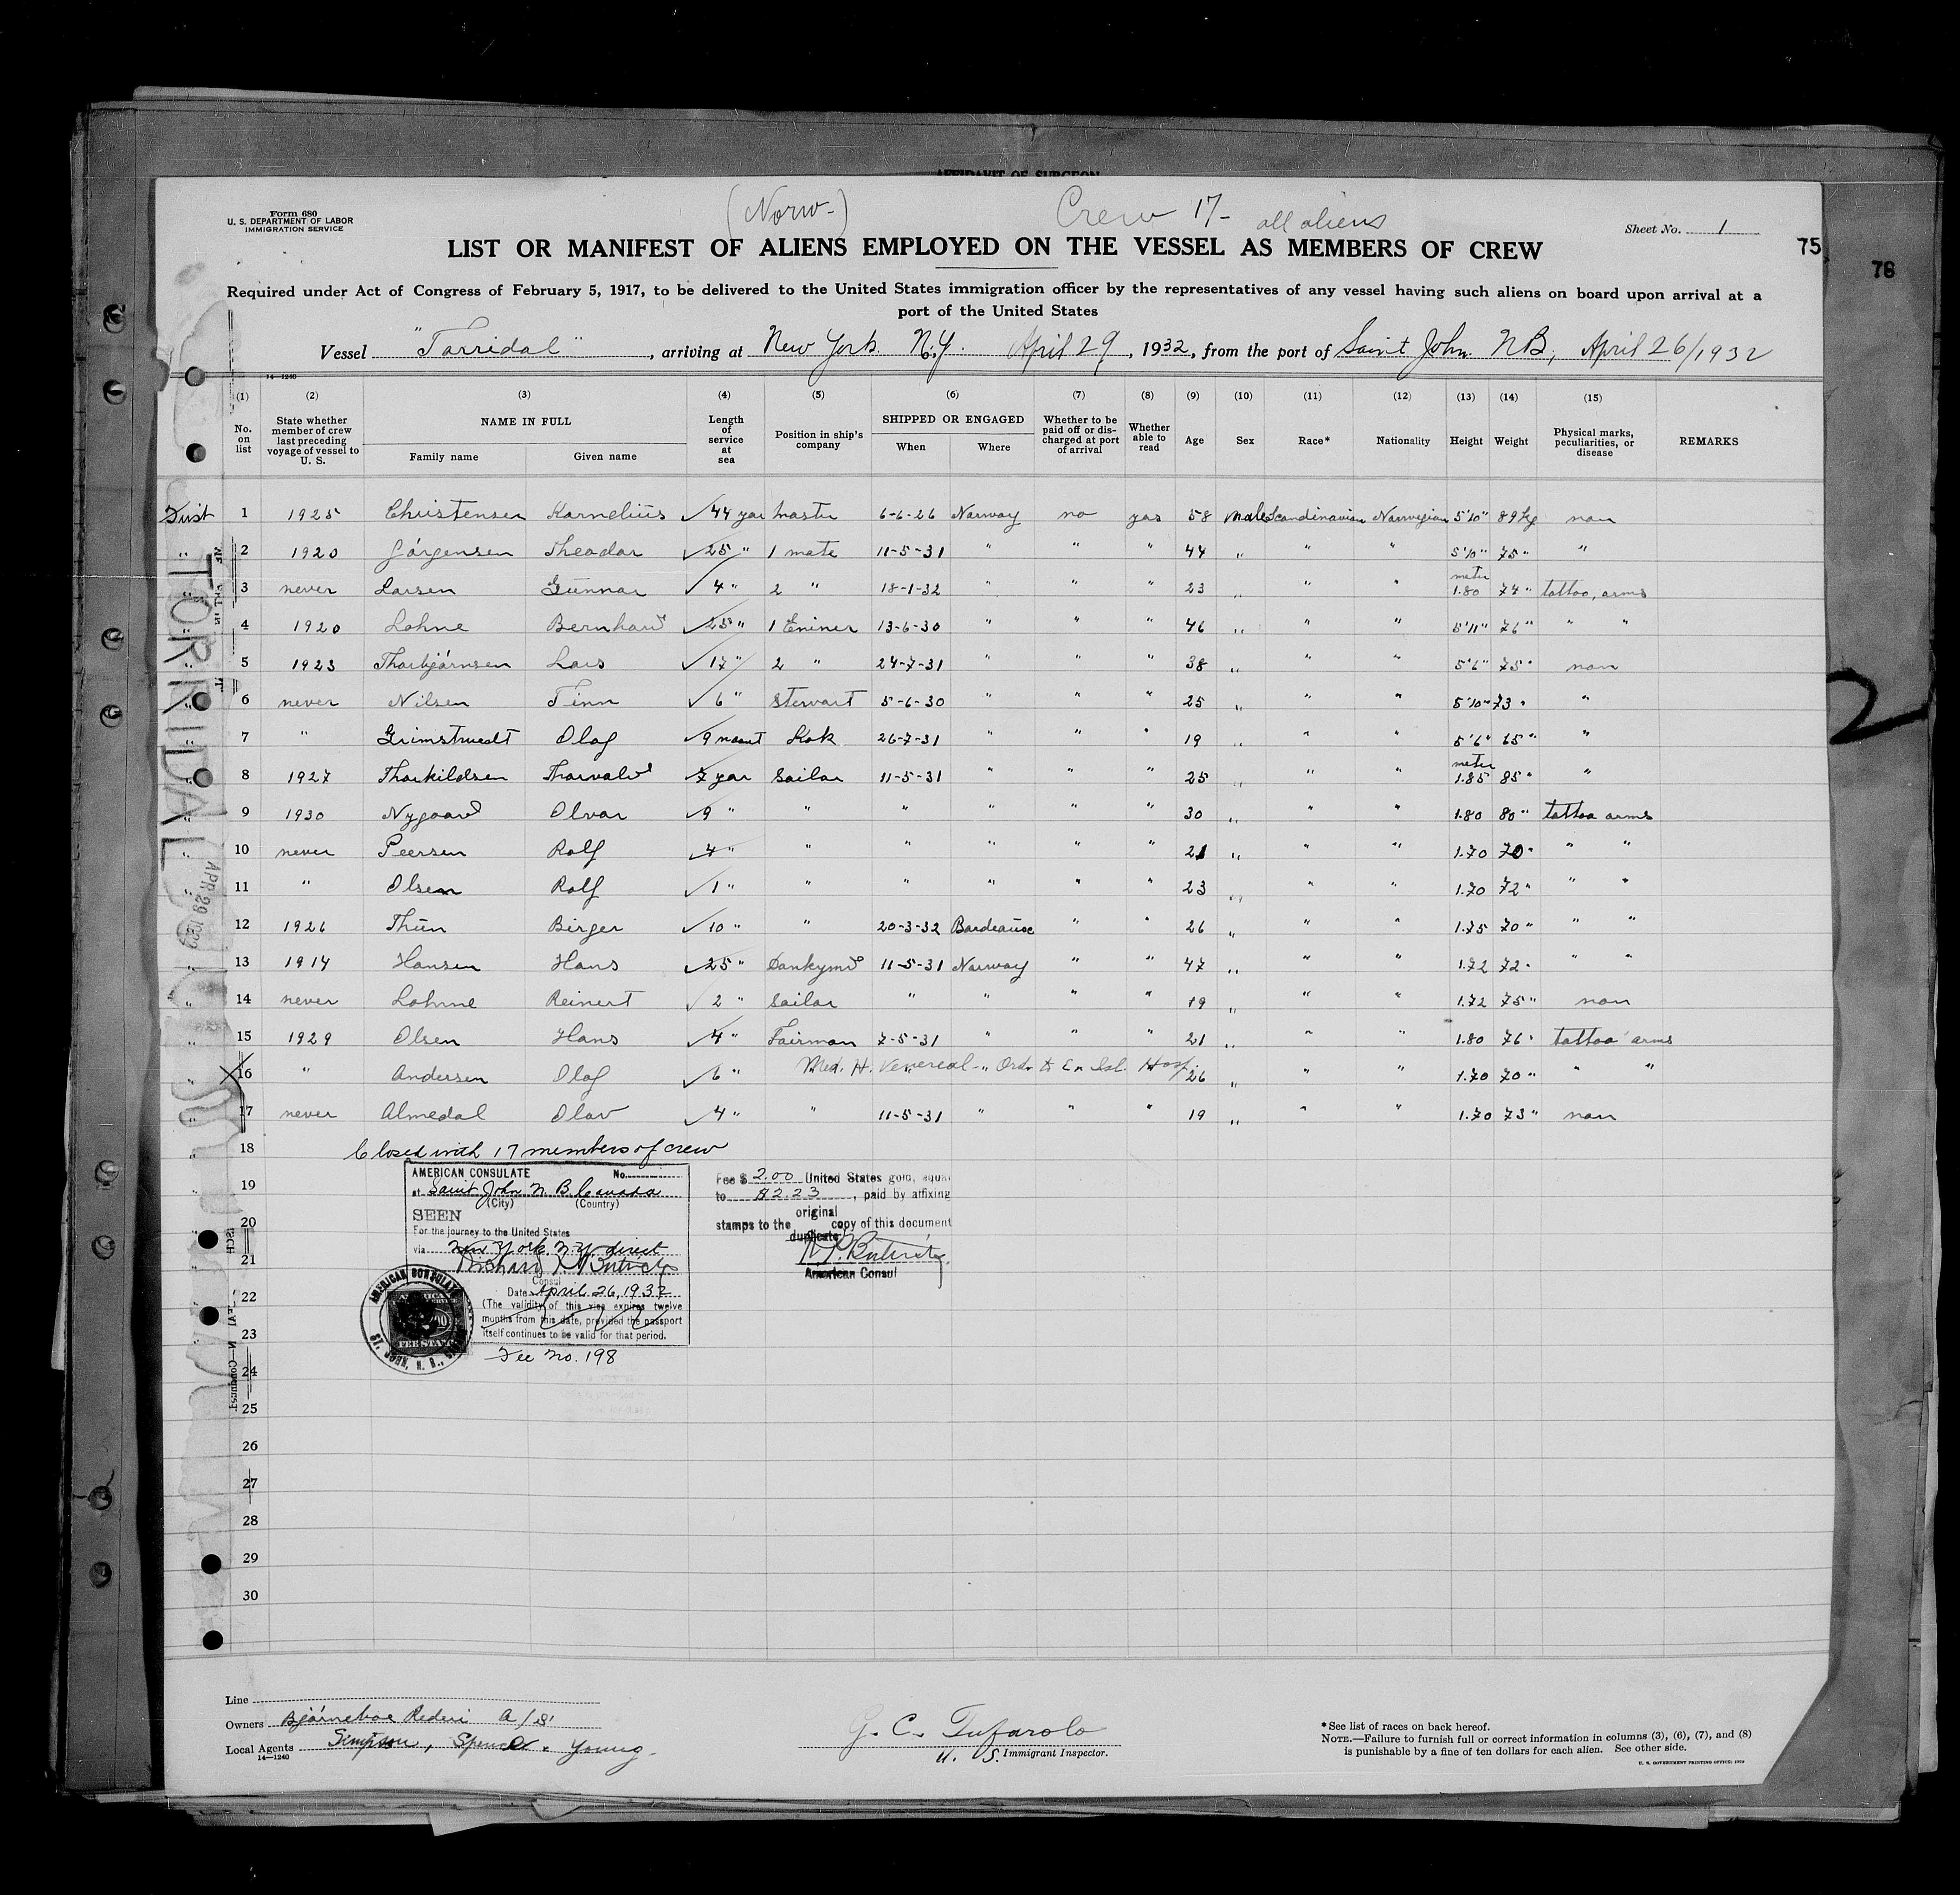 AFFIDAVIT OF SURGEON
Form 680
U. S. DEPARTMENT OF LABOR
IMMIGRATION SERVICE
(Norw-)
Crew 17- all aliens
Sheet No. 1
LIST OR MANIFEST OF ALIENS EMPLOYED ON THE VESSEL AS MEMBERS OF CREW
75
76
Required under Act of Congress of February 5, 1917, to be delivered to the United States immigration officer by the representatives of any vessel having such aliens on board upon arrival at a
port of the United States
Vessel "Torridal", arriving at New York. N.Y. April 29, 1932, from the port of Saint John. NB, April 26/1932
14—1240
(1) (2) (3) (4) (5) (6) (7) (8) (9) (10) (11) (12) (13) (14) (15)
No. on list
State whether member of crew last preceding voyage of vessel to U. S.
NAME IN FULL
Family name Given name
Length of service at sea
Position in ship's company
SHIPPED OR ENGAGED
When Where
Whether to be paid off or discharged at port of arrival
Whether able to read
Age Sex Race* Nationality Height Weight
Physical marks, peculiarities, or disease
REMARKS
1 1925 Christensen Karnelius 44 year Master 6-6-26 Norway no yas 58 male Scandinavian Norwegian 5'10" 89 kg non
2 1920 Jörgensen Theodor 25 " 1 mate 11-5-31 " " " 44 " " " 5'10" 75 " "
3 never Larsen Gunnar 4 " 2 " 18-1-32 " " " 23 " " " meter 1.80 74 " tattoo, arms
4 1920 Lohne Bernhard 25 " 1 Eniner 13-6-30 " " " 46 " " " 5'11" 76 " " "
5 1923 Thorbjörnsen Lars 17 " 2 " 24-7-31 " " " 38 " " " 5'6" 75 " non
6 never Nilsen Finn 6 " Stewart 5-6-30 " " " 25 " " " 5'10" 73 " "
7 " Grimstvedt Olaf 9 mount Kok 26-7-31 " " " 19 " " " 5'6" 65 " "
8 1927 Thorkildsen Thorvald 7 year Sailor 11-5-31 " " " 25 " " " meter 1.85 85 " "
9 1930 Nygaard Olvar 9 " " " " " " 30 " " " 1.80 80 " tattoo arms
10 never Peersen Rolf 4 " " " " " " 21 " " " 1.70 70 " " "
11 " Olsen Rolf 1 " " " " " " 23 " " " 1.70 72 " " "
12 1926 Thün Birger 10 " " 20-3-32 Bordeaux " " 26 " " " 1.75 70 " " "
13 1914 Hansen Hans 25 " Dankymd 11-5-31 Norway " " 47 " " " 1.72 72 " " "
14 never Lohne Reinert 2 " Sailor " " " " 19 " " " 1.72 75 " non
15 1929 Olsen Hans 4 " Fairman 7-5-31 " " " 21 " " " 1.80 76 " tattoo arms
16 " Andersen Olaf 6 " Med. H. Venereal Ord. Isl. Hosp. 26 " " " 1.70 70 " " "
17 never Almedal Olav 4 " " 11-5-31 " " " 19 " " " 1.70 73 " non
18 Closed with 17 members of crew
19
20
21
22
23
24
25
26
27
28
29
30
TORRIDAL
APR 29 1932
AMERICAN CONSULATE No.
at Saint John N. B. Canada
(City) (Country)
SEEN
For the journey to the United States
via New York. N.Y. direct
Consul
Date April 26, 1932
(The validity of this visa expires twelve
months from this date, provided the passport
itself continues to be valid for that period.
Fee No. 198
Fee $ 2.00 United States gold, equal
to $2.23, paid by affixing
original
stamps to the copy of this document
duplicate
American Consul
AMERICAN CONSULATE
ST. JOHN, N. B.,
FEE STAMP
2
Line
Owners Bjørneboe Rederi A/S
Local Agents Simpson, Spence & Young.
14—1240
G. C. Tufarolo
U. S. Immigrant Inspector.
*See list of races on back hereof.
NOTE.—Failure to furnish full or correct information in columns (3), (6), (7), and (8)
is punishable by a fine of ten dollars for each alien. See other side.
U. S. GOVERNMENT PRINTING OFFICE